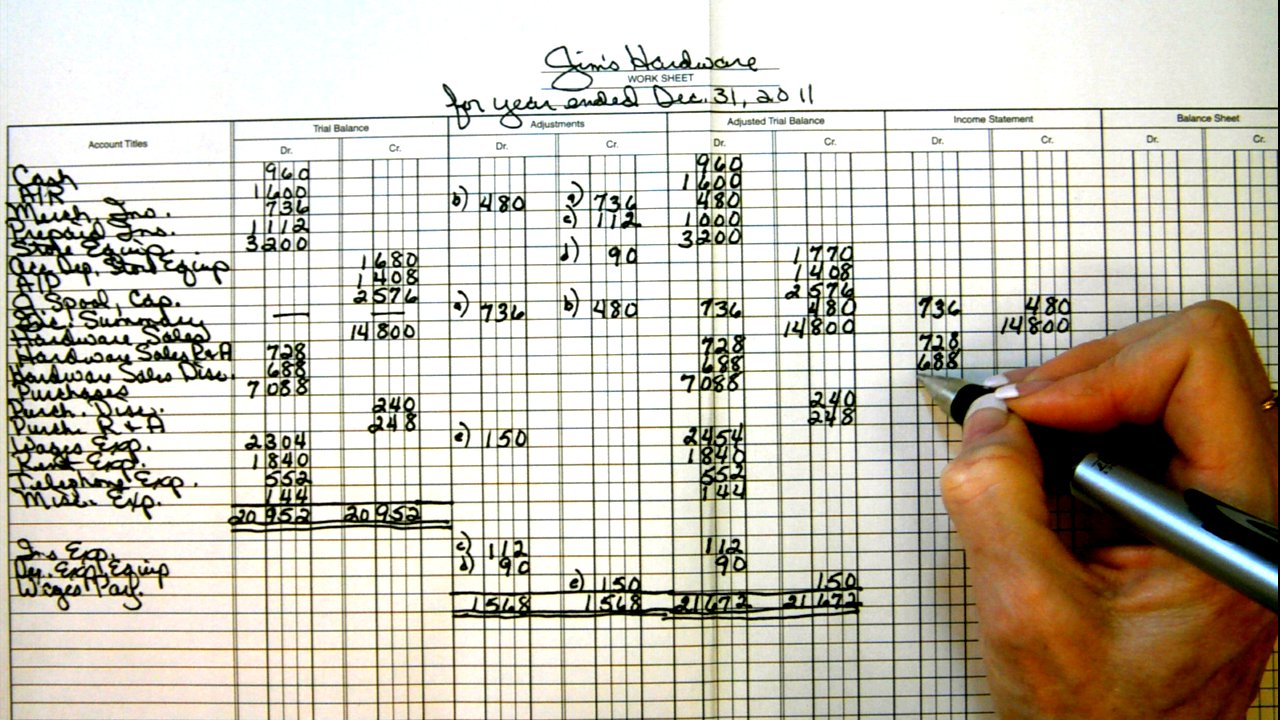 Jim's Hardware
WORK SHEET
for year ended Dec. 31, 2011
Account Titles Trial Balance Adjustments Adjusted Trial Balance Income Statement Balance Sheet
Dr. Cr. Dr. Cr. Dr. Cr. Dr. Cr. Dr. Cr.
Cash 960 960
A/R 1600 1600
Merch. Ins. 736 b) 480 a) 736 480
Prepaid Ins. 1112 c) 112 1000
Store Equip. 3200 3200
Acc. Dep. Store Equip 1680 d) 90 1770
A/P 1408 1408
Spool, Cap. 2576 2576
Inc. Summary — — a) 736 b) 480 736 480 736 480
Hardware Sales 14800 14800 14800
Hardware Sales R&A 728 728 728
Hardware Sales Disc. 688 688 688
Purchases 7088 7088
Purch. Disc. 240 240
Purch. R&A 248 248
Wages Exp. 2304 e) 150 2454
Rent Exp. 1840 1840
Telephone Exp. 552 552
Misc. Exp. 144 144
20952 20952
Ins Exp. c) 112 112
Dep. Exp. Equip d) 90 90
Wages Pay. e) 150 150
1568 1568 21672 21672